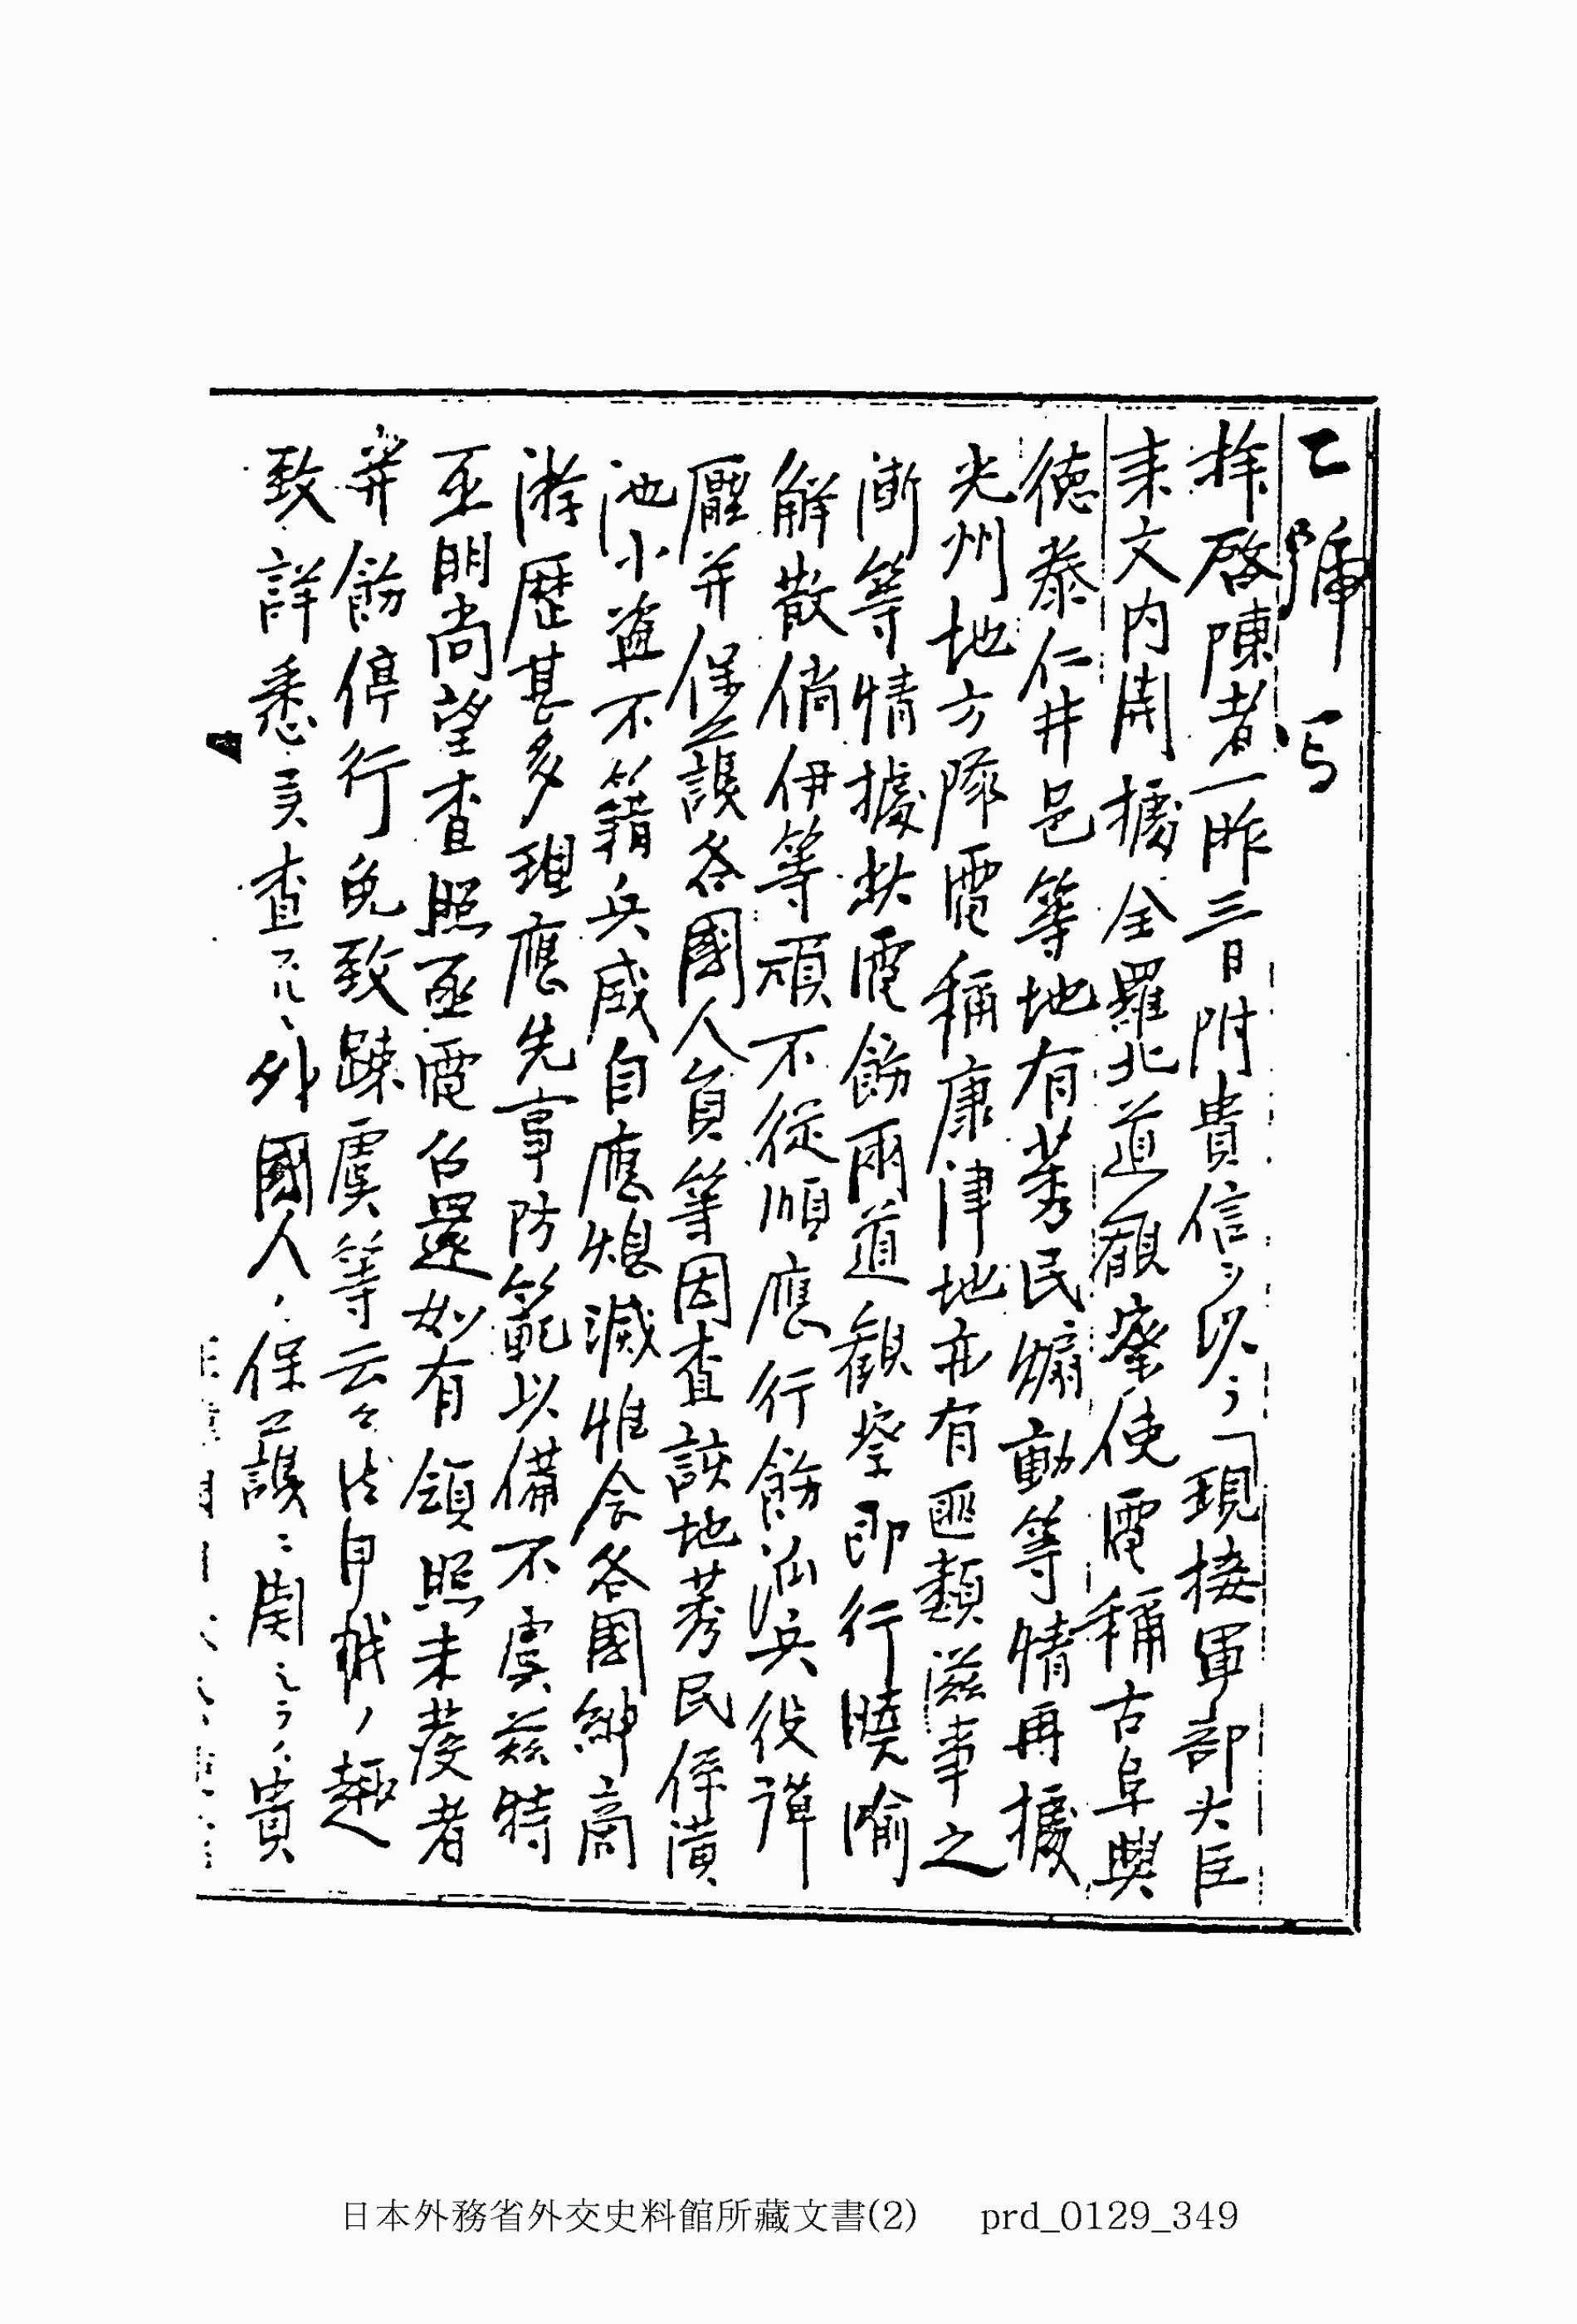 乙號 写
拝啓陳者一昨三日附貴信ヲ以テ「現接軍部大臣
来文内開據全羅北道觀察使電稱古阜興
德泰仁井邑等地有莠民煽動等情再據
光州地方隊電稱康津地亦有匪類滋事之
漸等情據此電飭兩道觀察即行曉喩
解散倘伊等頑不從順應行飭派兵役彈
壓并保護各國人員等因査該地莠民係潢
池小盗不籍兵威自應熄滅惟念各國紳商
游歴甚多理應先事防範以備不虞玆特
函明尚望査照亟電召還如有領照未發者
并飭停行免致疎虞等云々御申越ノ趣
致詳悉候査スルニ外國人ノ保護ニ関シテハ貴